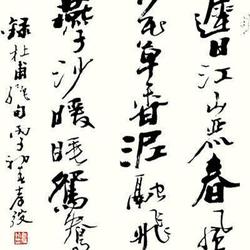 遲日江山麗春風
花草香泥融飛
燕子沙暖睡鴛鴦
録杜甫絕句丙子初